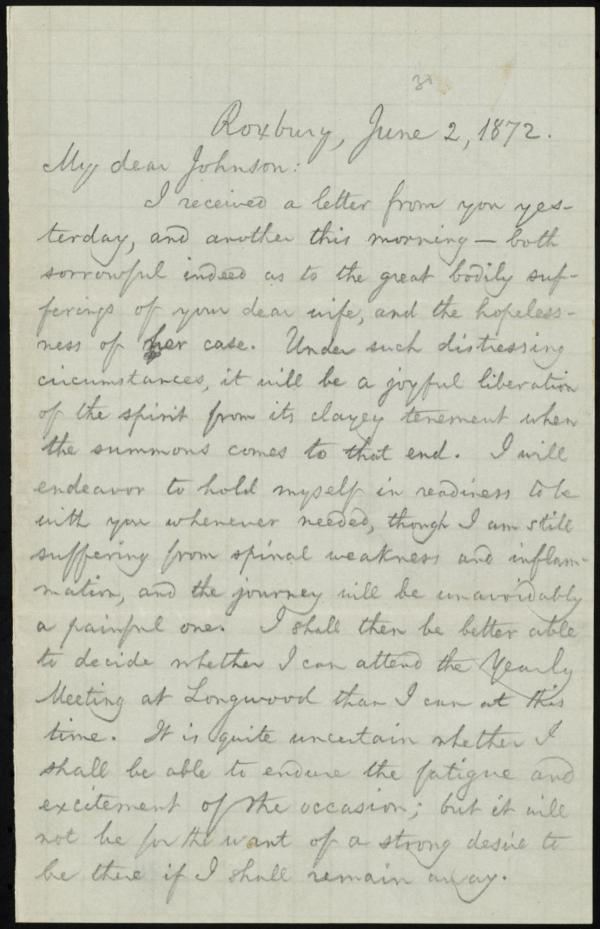 Roxbury, June 2, 1872.
My dear Johnson:
I received a letter from you yes-
terday, and another this morning — both
sorrowful indeed as to the great bodily suf-
ferings of your dear wife, and the hopeless-
ness of her case. Under such distressing
circumstances, it will be a joyful liberation
of the spirit from its clayey tenement when
the summons comes to that end. I will
endeavor to hold myself in readiness to be
with you whenever needed, though I am still
suffering from spinal weakness and inflam-
mation, and the journey will be unavoidably
a painful one. I shall then be better able
to decide whether I can attend the Yearly
Meeting at Longwood than I can at this
time. It is quite uncertain whether I
shall be able to endure the fatigue and
excitement of the occasion; but it will
not be for the want of a strong desire to
be there if I shall remain away.